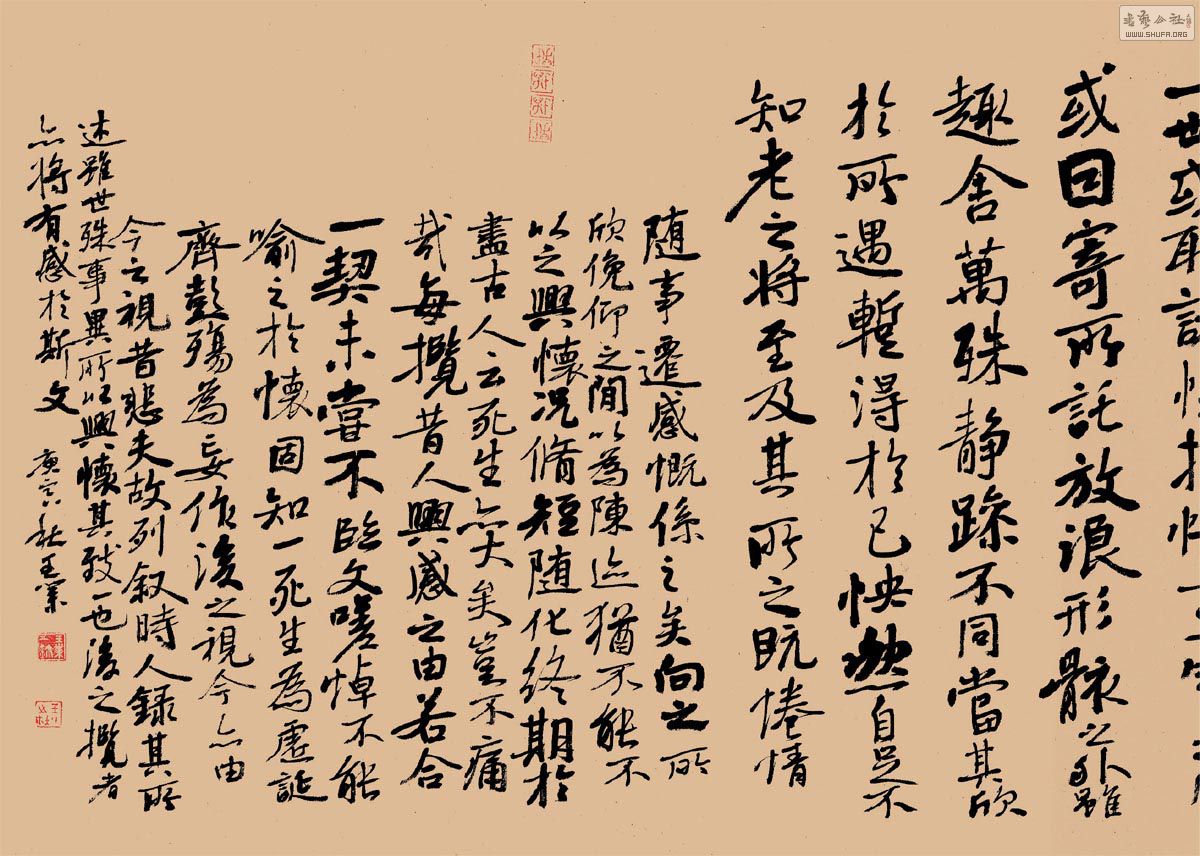 一世或取
或因寄所託放浪形骸之外雖
趣舍萬殊静躁不同當其欣
於所遇蹔得於己怏然自足不
知老之將至及其所之既惓情
随事遷感慨係之矣向之所
欣俛仰之間以為陳迹猶不能不
以之興懷況脩短随化終期於
盡古人云死生亦大矣豈不痛
哉每攬昔人興感之由若合
一契未嘗不臨文嗟悼不能
喻之於懷固知一死生為虛誕
齊彭殤為妄作後之視今亦由
今之視昔悲夫故列叙時人録其所
述雖世殊事異所以興懷其致一也後之攬者
亦將有感於斯文 庚寅秋王業
書藝公社
WWW.SHUFA.ORG